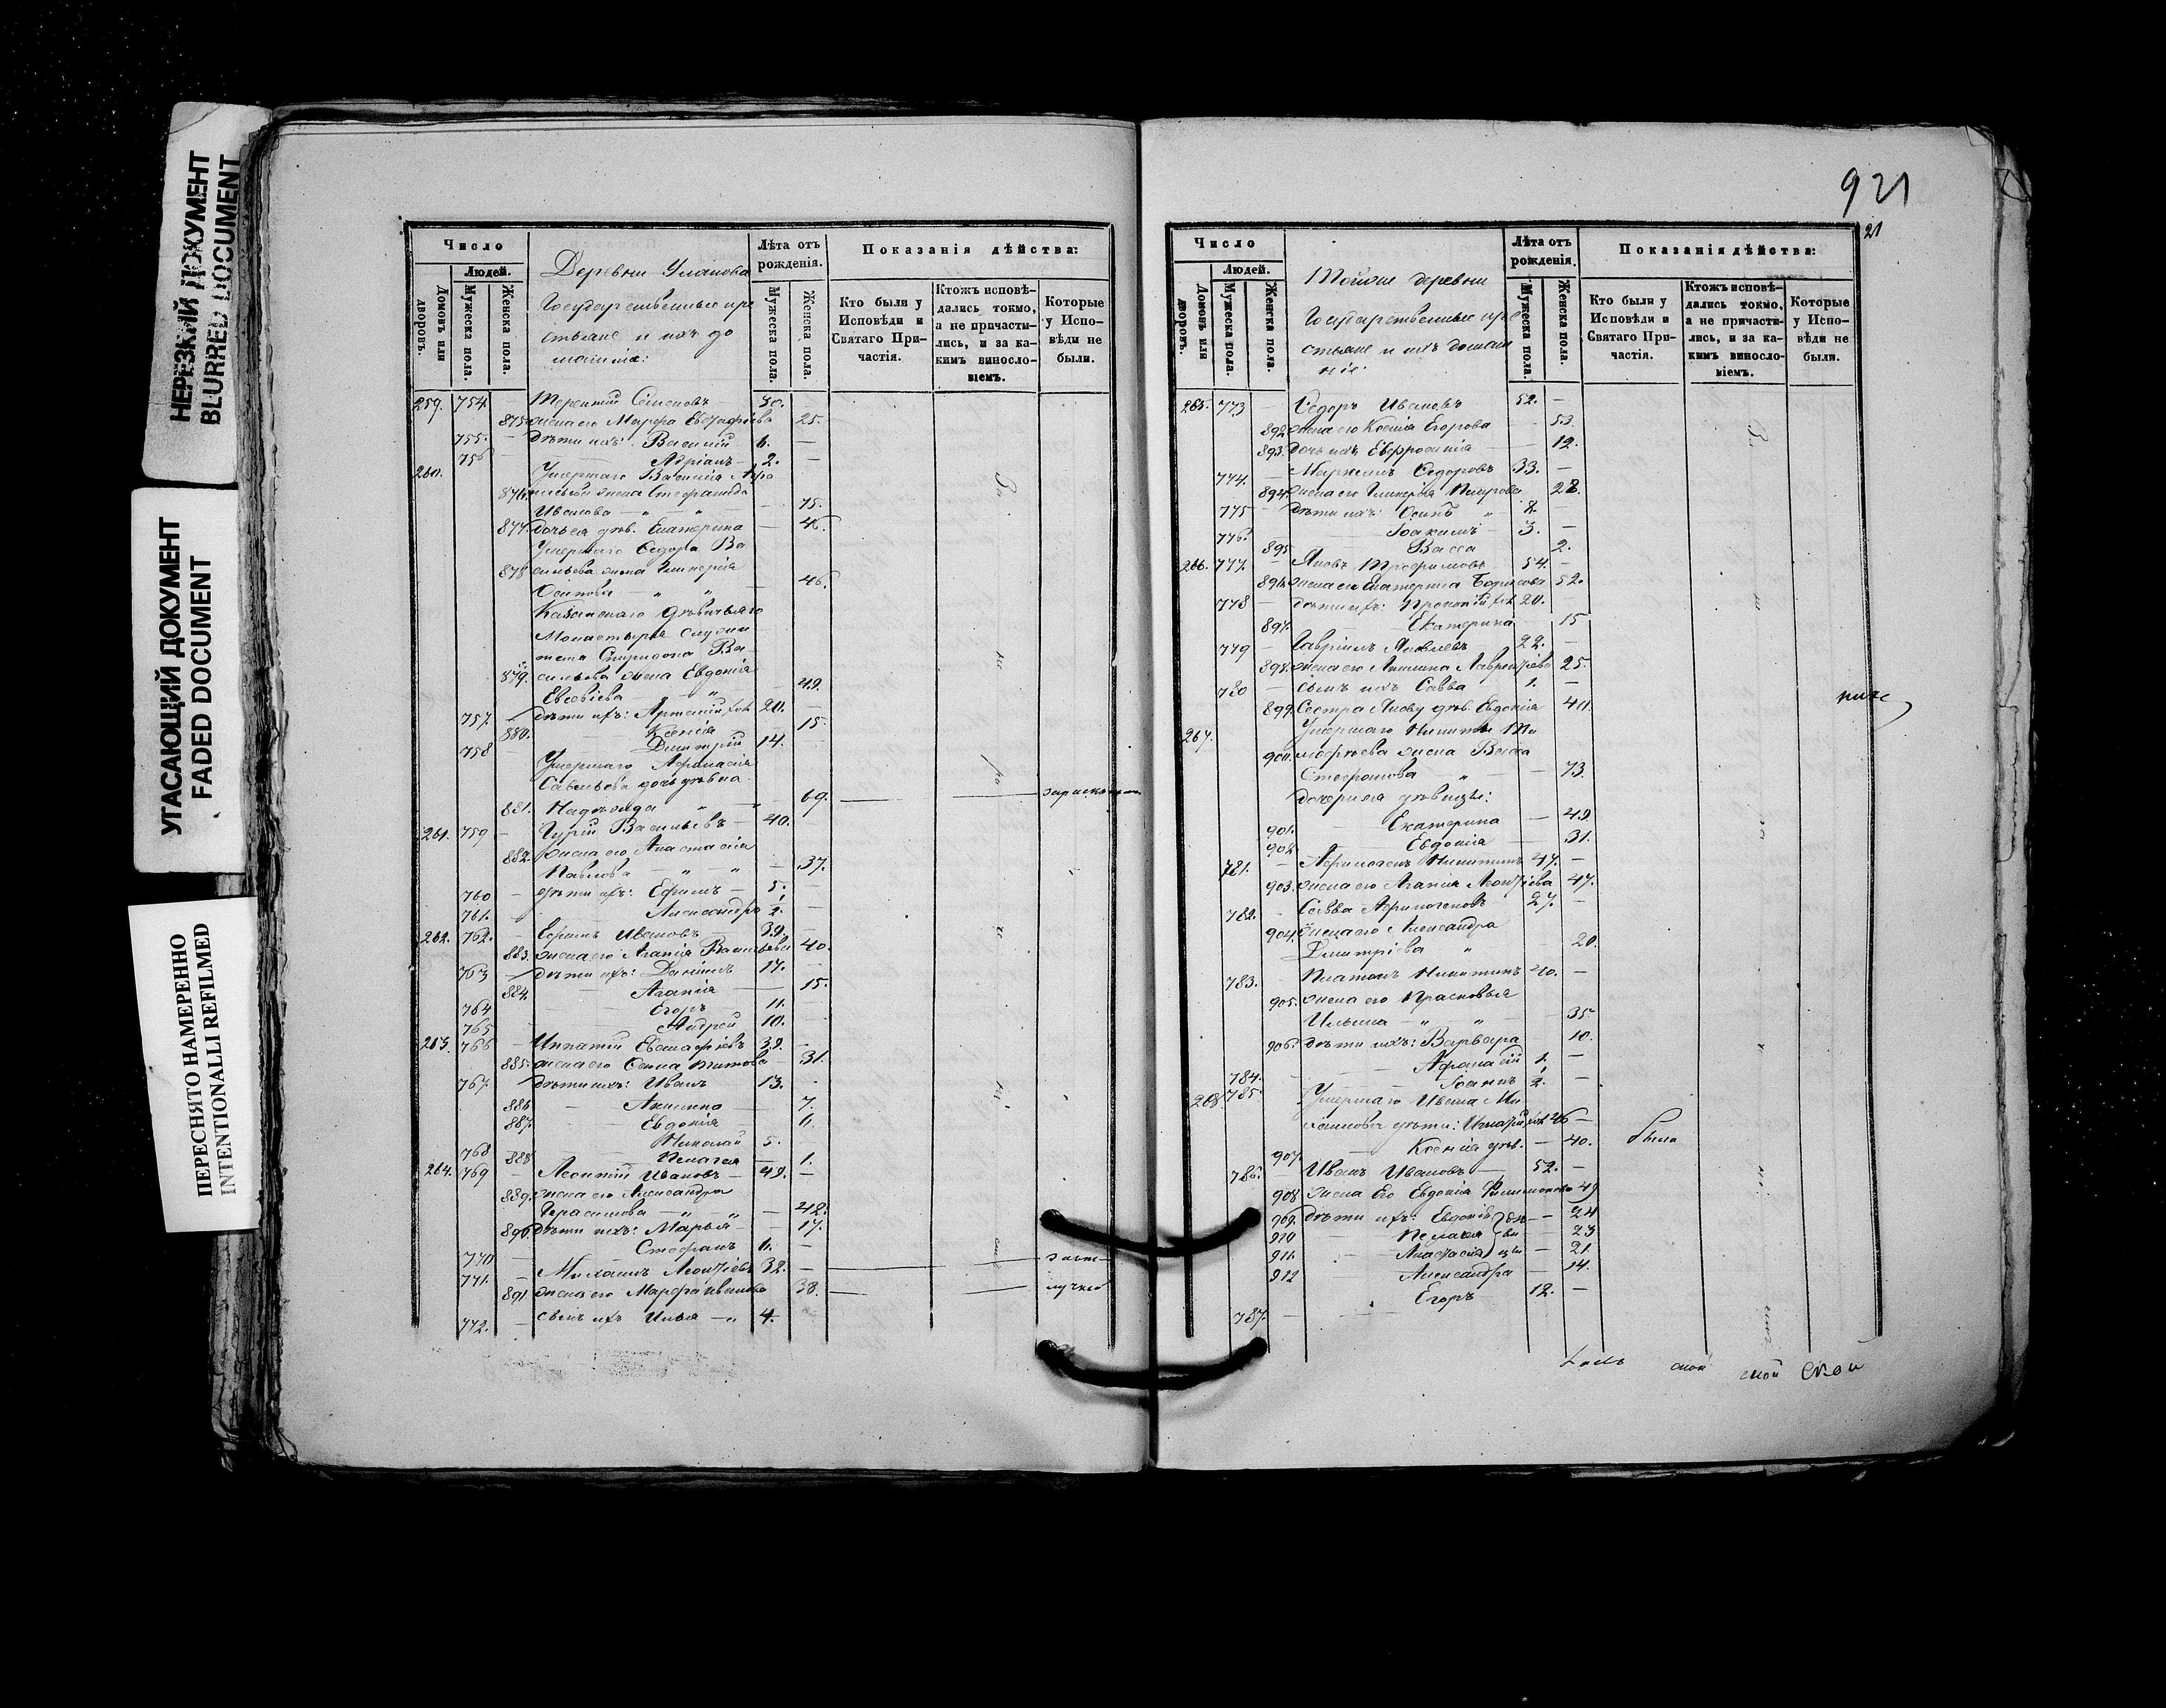 НЕРЕЗКИЙ ДОКУМЕНТ
BLURRED DOCUMENT
УГАСАЮЩИЙ ДОКУМЕНТ
FADED DOCUMENT
ПЕРЕСНЯТО НАМЕРЕННО
INTENTIONALLI REFILMED
Число
Людей.
Домовъ или дворовъ.
Мужеска пола.
Женска пола.
Деревни Уланова
Государственные кре
стьяне и ихъ до
машніе:
Лѣта отъ рожденія.
Мужеска пола.
Женска пола.
Показанія дѣйства:
Кто были у Исповѣди и Святаго Причастія.
Ктожъ исповѣдались токмо, а не причастились, и за какимъ винословіемъ.
Которые у Исповѣди не были.
259. 754. Терентій Семеновъ 30.
875. жена его Марфа Евстафіева 25.
755. дѣти ихъ: Василій 6.
756 Адріанъ 2.
260. Умершаго Василія
876. жена Стефанида
Иванова 75.
877. дочь ея дѣв. Екатерина 46.
Умершаго Ѳедора Ва
878 сильева жена Гликерія
Осипова 46.
Казанскаго дѣвичьяго
Монастыря служи
теля Спиридона Ва
879. сильева жена Евдокія
Евсевіева 49.
757. дѣти ихъ: Артемій 20.
880. Ксенія 15.
758 Димитрій 14.
Умершаго Афанасія
Савельева дочь дѣвка
881. Надежда 69.
261. 759 Гурій Васильевъ 40.
882. жена его Анастасія
Павлова 37.
760 дѣти ихъ: Ефимъ 5.
761. Александръ ½.
262. 762. Ефимъ Ивановъ 39.
883. жена его Агапія Васильева 40.
763 дѣти ихъ: Даніилъ 17.
884. Агапія 15.
764 Егоръ 11.
765 Андрей 10.
263. 766 Ипатій Евстафіевъ 39.
885. жена его Титова 31.
767. дѣти ихъ: Иванъ 13.
886 Акилина 7.
887. Евдокія 6.
768 Николай 5.
888 Пелагея 1.
264. 769 Леонтій Ивановъ 49.
889. жена его Александра
Герасимова 48.
890. дѣти ихъ: Марья 17.
770 Стефанъ 6.
771. Михаилъ Леонтіевъ 32.
891 жена его Марфа Иванова 38.
772. сынъ ихъ Илья 4.
921
21
Число
Людей.
Домовъ или дворовъ.
Мужеска пола.
Женска пола.
Тойже деревни
Государственные кре
стьяне и ихъ домаш
ніе:
Лѣта отъ рожденія.
Мужеска пола.
Женска пола.
Показанія дѣйства:
Кто были у Исповѣди и Святаго Причастія.
Ктожъ исповѣдались токмо, а не причастились, и за какимъ винословіемъ.
Которые у Исповѣди не были.
265. 773 Ѳедоръ Ивановъ 52.
892. жена его Ксенія Егорова 53.
893. дочь ихъ Евфросинія 12.
774. Маркелъ Ѳедоровъ 33.
894. жена его Гликерія Петрова 28.
775 дѣти ихъ: Осипъ 8.
776. Іоакимъ 3.
895 Васса 2.
266. 777. Яковъ Трофимовъ 54.
896. жена его Екатерина Борисова 52.
778 дѣти ихъ: Прокопій 20.
897. Екатерина 15
779 Гавріилъ Яковлевъ 22.
898. жена его Акилина Лаврентіева 25.
780 сынъ ихъ Савва 1.
899. Сестра Якову дѣв. Евдокія 40.
267. Умершаго Никиты Ти
900. мофеева жена Васса
Стефанова 73.
дочери ея дѣвицы:
901. Екатерина 49.
902. Евдокія 31.
781. Афиногенъ Никитинъ 47.
903. жена его Агапія Леонтіева 47.
782. Савва Афиногеновъ 27.
904. жена его Александра
Димитріева 20.
783. Платонъ Никитинъ 40.
905. жена его Прасковья
Ильина 35
906. дѣти ихъ: Варвара 10.
784. Афанасій 1.
785. Іоаннъ ½.
268 Умершаго Ивана Ми
хайлова дѣти: 46
907. Ксенія дѣв. 40. была
786. Иванъ Ивановъ 52.
908 жена Его Евдокія Филимонова 49
909. дѣти ихъ: Евдокія 24
910 Пелагея 23
911. Анастасія 21.
912 Александра 14.
787. Егоръ 12.